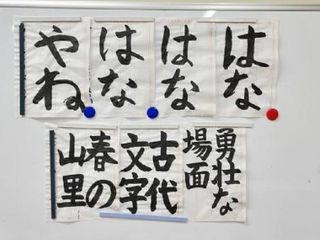 はな
はな
はな
やね
勇壮な
場面
古代
文字
春の
山里